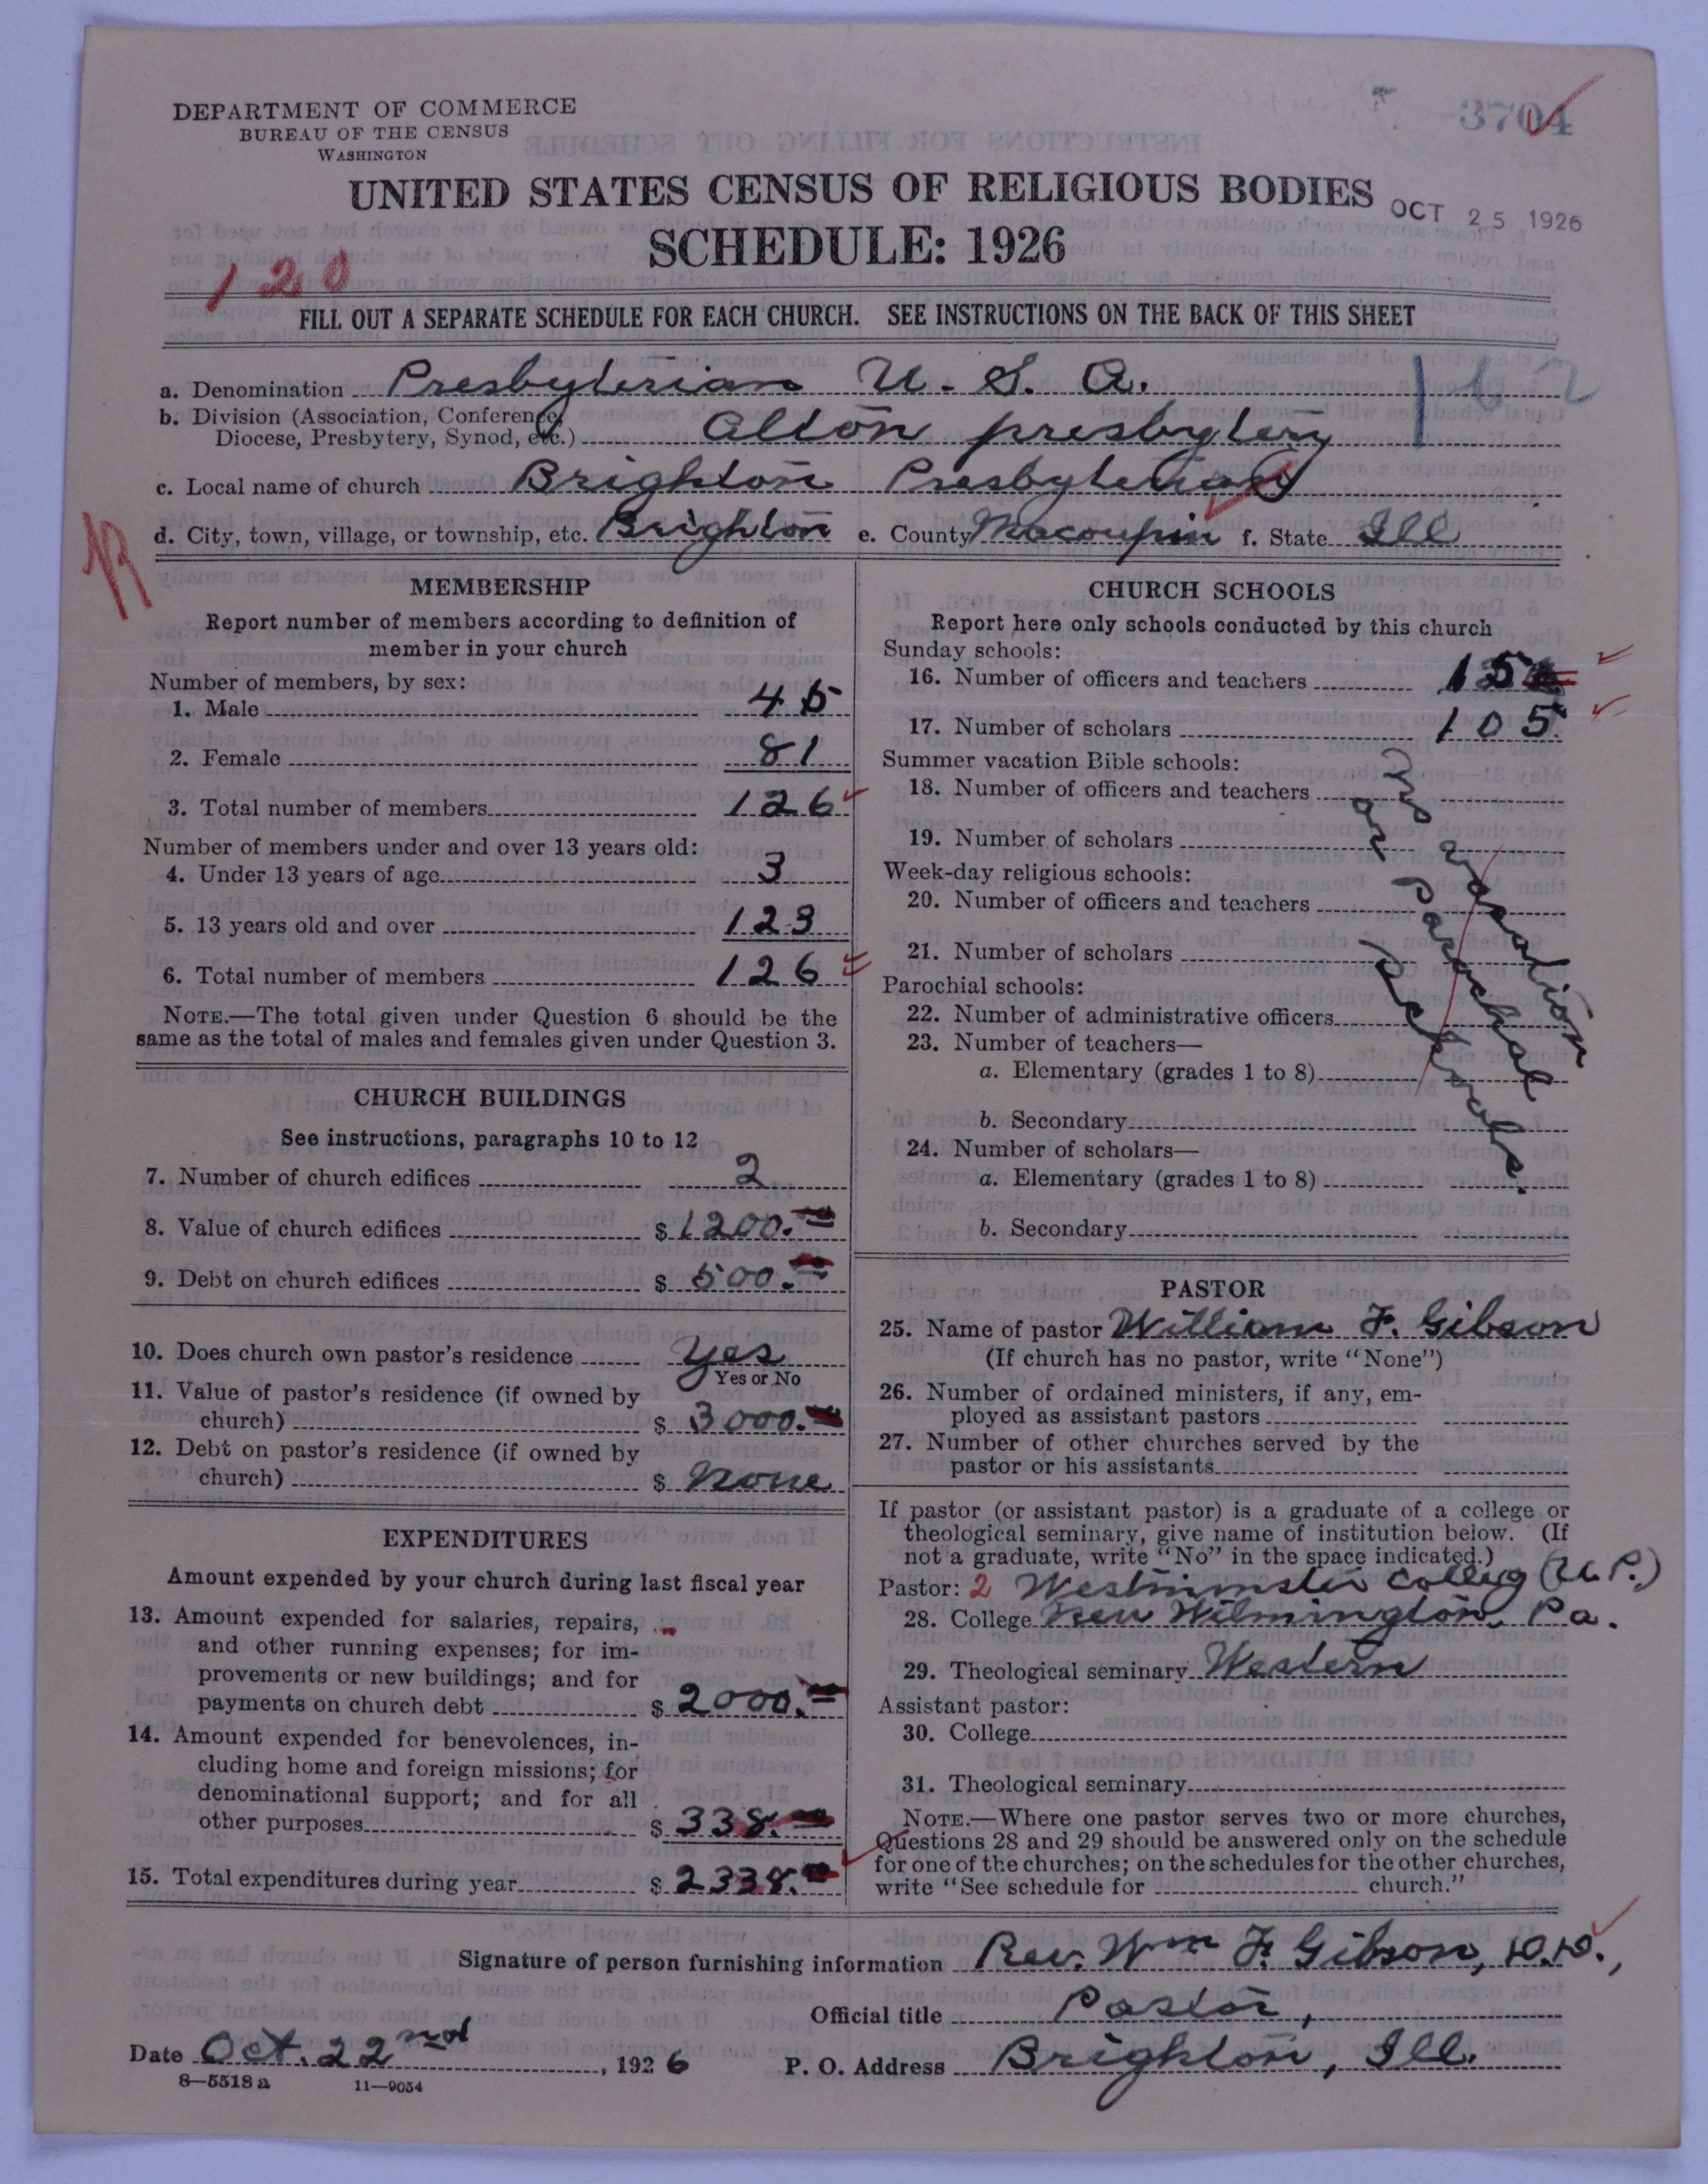 3704
DEPARTMENT OF COMMERCE
BUREAU OF THE CENSUS
WASHINGTON
UNITED STATES CENSUS OF RELIGIOUS BODIES
OCT 25 1926
SCHEDULE: 1926
120
FILL OUT A SEPARATE SCHEDULE FOR EACH CHURCH. SEE INSTRUCTIONS ON THE BACK OF THIS SHEET
a. Denomination Presbyterian U. S. A.
162
b. Division (Association, Conference,
Diocese, Presbytery, Synod, etc.) Alton presbytery
c. Local name of church Brighton Presbyterian
R
d. City, town, village, or township, etc. Brighton e. County Macoupin f. State Ill
MEMBERSHIP
Report number of members according to definition of
member in your church
Number of members, by sex:
1. Male 45
2. Female 81
3. Total number of members 126
Number of members under and over 13 years old:
4. Under 13 years of age 3
5. 13 years old and over 123
6. Total number of members 126
NOTE.—The total given under Question 6 should be the
same as the total of males and females given under Question 3.
CHURCH BUILDINGS
See instructions, paragraphs 10 to 12
7. Number of church edifices 2
8. Value of church edifices $ 1200.
9. Debt on church edifices $ 500.
10. Does church own pastor's residence yes
Yes or No
11. Value of pastor's residence (if owned by
church) $ 3000.
12. Debt on pastor's residence (if owned by
church) $ None
EXPENDITURES
Amount expended by your church during last fiscal year
13. Amount expended for salaries, repairs,
and other running expenses; for im-
provements or new buildings; and for
payments on church debt $ 2000.
14. Amount expended for benevolences, in-
cluding home and foreign missions; for
denominational support; and for all
other purposes $ 338.
15. Total expenditures during year $ 2338.
CHURCH SCHOOLS
Report here only schools conducted by this church
Sunday schools:
16. Number of officers and teachers 15
17. Number of scholars 105
Summer vacation Bible schools:
18. Number of officers and teachers
19. Number of scholars
Week-day religious schools:
20. Number of officers and teachers
21. Number of scholars
Parochial schools:
22. Number of administrative officers
23. Number of teachers—
a. Elementary (grades 1 to 8)
b. Secondary
24. Number of scholars—
a. Elementary (grades 1 to 8)
b. Secondary
No vacation
or parochial
schools.
PASTOR
25. Name of pastor William F. Gibson
(If church has no pastor, write "None")
26. Number of ordained ministers, if any, em-
ployed as assistant pastors
27. Number of other churches served by the
pastor or his assistants
If pastor (or assistant pastor) is a graduate of a college or
theological seminary, give name of institution below. (If
not a graduate, write "No" in the space indicated.)
Pastor: 2 Westminster Colleg (U.P.)
28. College New Wilmington, Pa.
29. Theological seminary Western
Assistant pastor:
30. College
31. Theological seminary
NOTE.—Where one pastor serves two or more churches,
Questions 28 and 29 should be answered only on the schedule
for one of the churches; on the schedules for the other churches,
write "See schedule for church."
Signature of person furnishing information Rev. Wm F. Gibson, D.D.,
Official title Pastor,
Date Oct. 22nd, 1926 P. O. Address Brighton, Ill.
8—5518a 11—9054